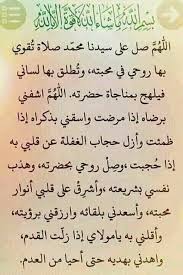 بسم الله ما شاء الله لا قوة إلا بالله
اللهُمَّ صل على سيدنا محمّد صلاة تُقوي
بها روحي في محبته، وتُطلق بها لساني
فيلهج بمناجاة حضرته. اللهُمَّ اشفني
برضاه إذا مرضت واسقني بذكراه إذا
ظمئت وأزل حجاب الغفلة عن قلبي به
إذا حُجبت ،وصِلْ روحي بحضرته، وهذب
نفسي بشريعته ،وأشرقْ على قلبي أنوار
محبته، وأسعدني بلقائه وارزقني برؤيته،
وأقلني به يامولاي إذا زلّت القدم،
واهدني بهديه حتى أحيا من العدم.